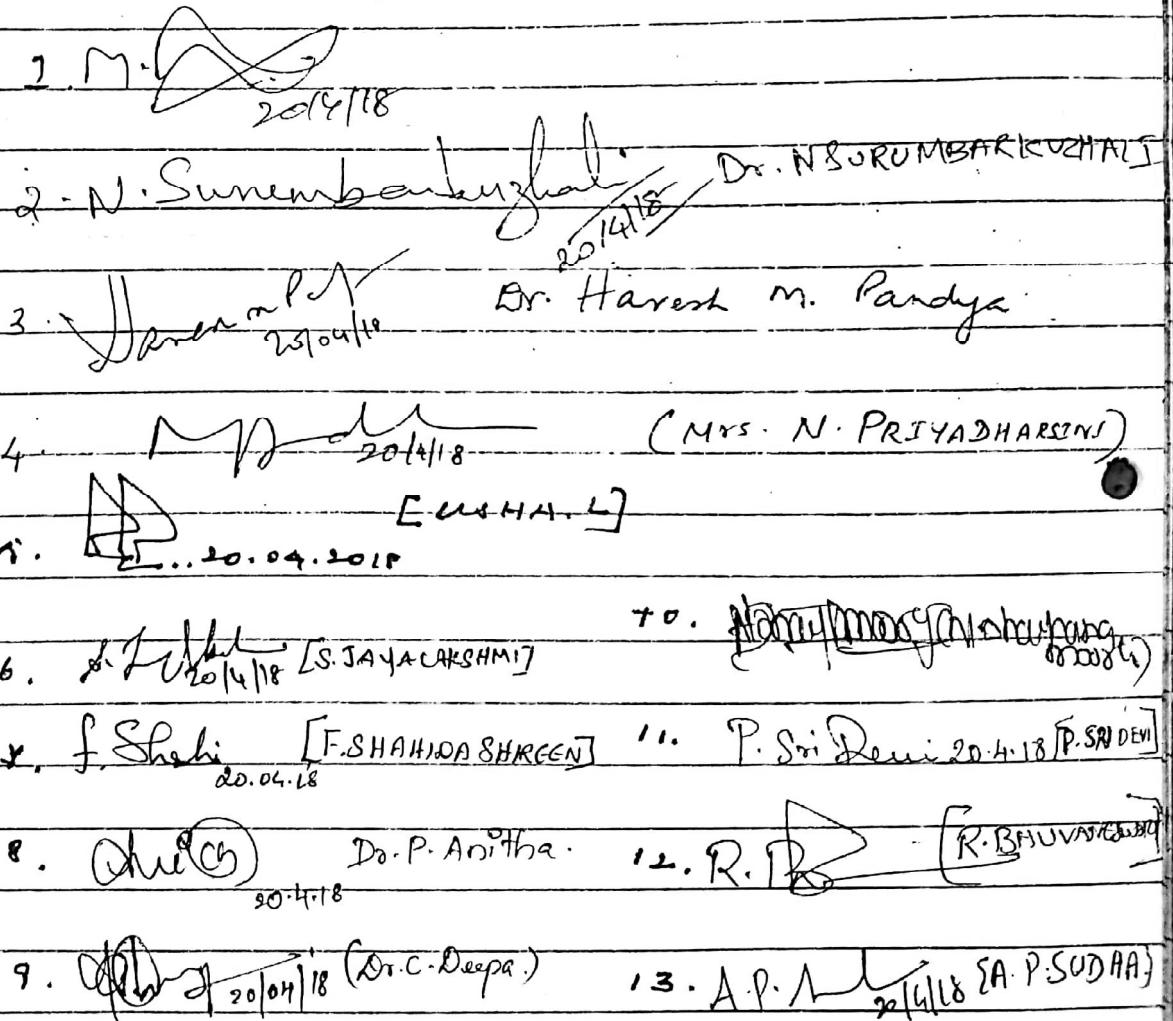 1. M.
20/4/18
2. N. Surumbarkuzhali 20/4/18 Dr. N SURUMBARKUZHALI
3. 20/04/18 Dr. Haresh M. Pandya
4. 20/4/18 (Mrs. N. PRIYADHARSINI)
[USHA. L]
20.04.2018
6. 20/4/18 [S. JAYALAKSHMI]
f. Shahi [F. SHAHIDA SHREEN]
20.04.18
8. Dr. P. Anitha.
20.4.18
9. 20/04/18 (Dr. C. Deepa.)
10.
11. P. Sri Devi 20.4.18 [P. SRI DEVI]
12. R. [R. BHUVANESWARI]
13. A.P. 20/4/18 {A. P. SUDHA}